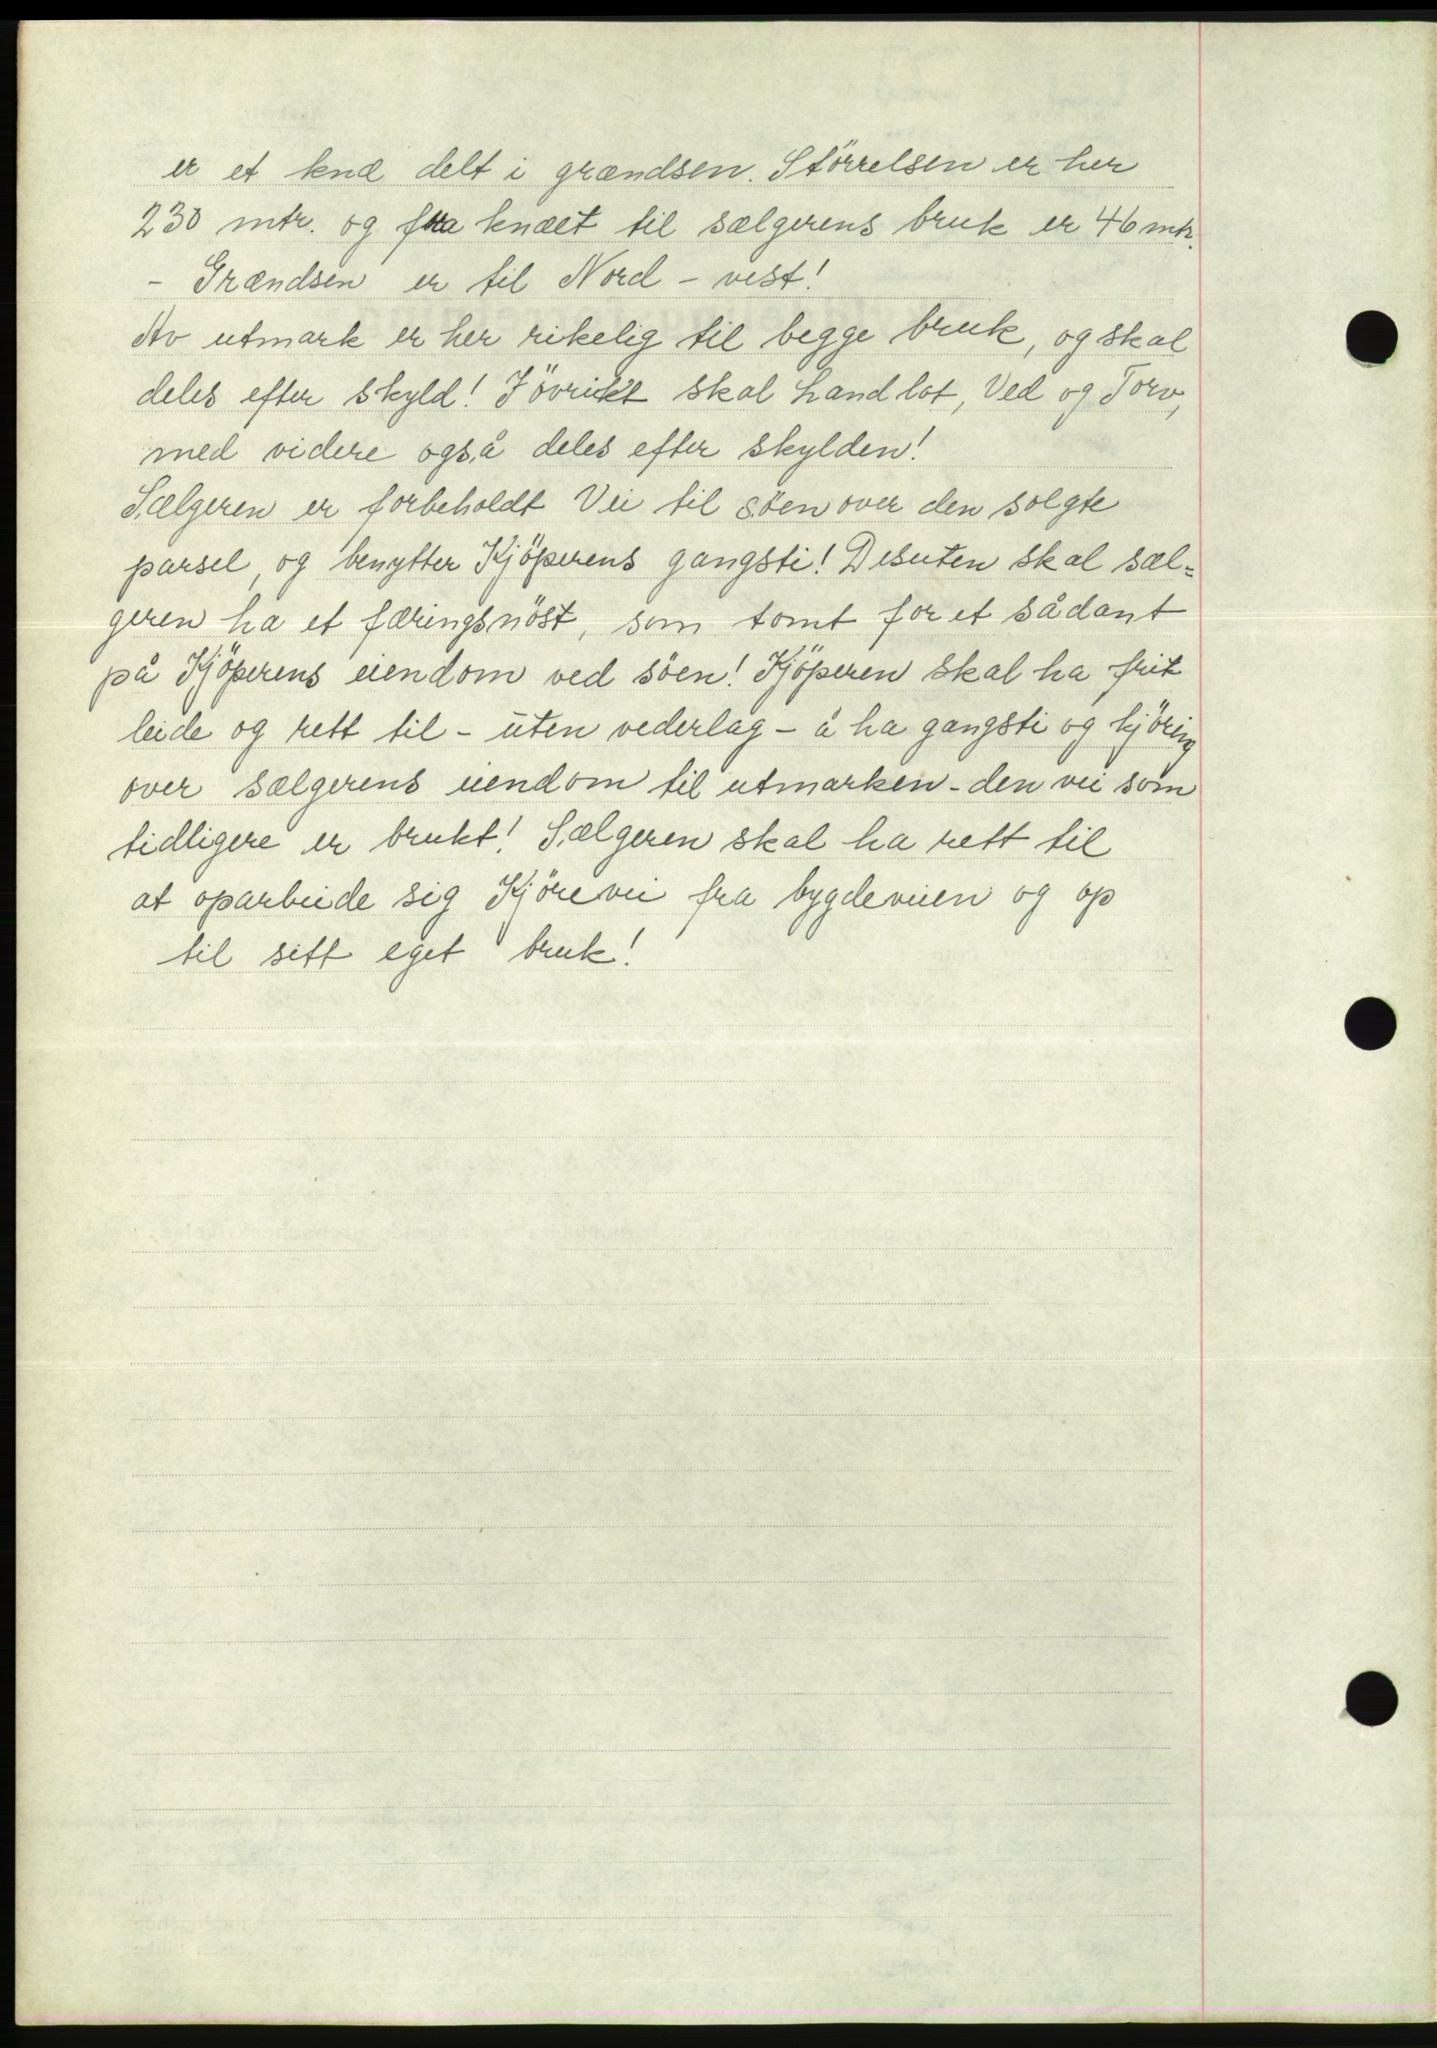 er et knæ delt i grændsen. Störrelsen er her
230 mtr. og fra knæet til sælgerens bruk er 46 mtr.
- Grændsen er til Nord - vest!
Av utmark er her rikelig til begge bruk, og skal
deles efter skyld! I övrikt skal Landlot, Ved og Torv,
med videre også deles efter skylden!
Sælgeren er forbeholdt Vei til söen over den solgte
parsel, og benytter Kjöperens gangsti! Desuten skal sæl=
geren ha et færingsnöst, som tomt for et sådant
på Kjöperens eiendom ved söen! Kjöperen skal ha frit
leide og rett til - uten vederlag - å ha gangsti og kjöring
over sælgerens eiendom til utmarken - den vei som
tidligere er brukt! Sælgeren skal ha rett til
at oparbeide sig Kjörevei fra bygdeveien og op
til sitt eget bruk!